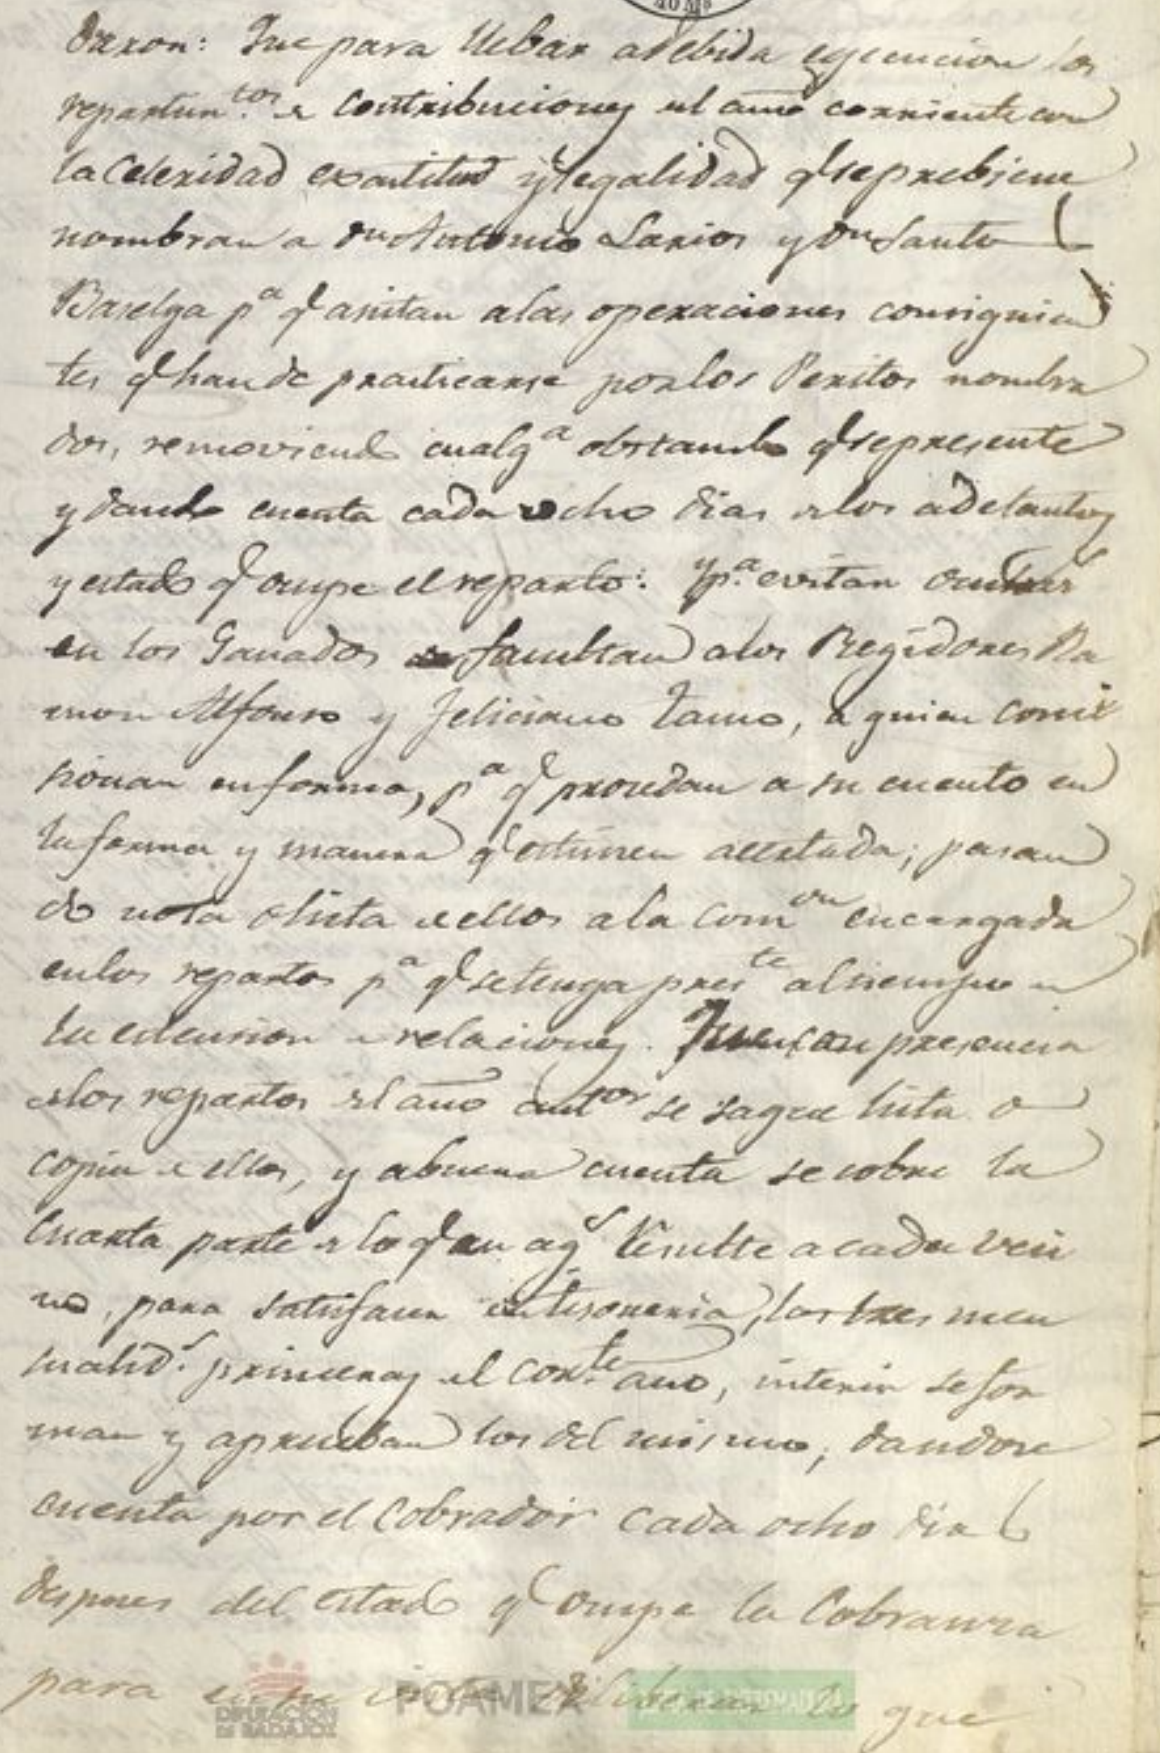 40 Ms
daron: Que para llebar a debida egecucion los
repartim.tos de contribuciones del año corriente con
la Celeridad exactitud y legalidad q.e se prebiene
nombran a Dn Antonio Larios y Dn Santos
Baselga p.a q.e asistan a las operaciones consiguien
tes q.e han de practicarse por los Peritos nombra
dos, removiendo cualq.a obstaculo q.e se presente
y dando cuenta cada ocho dias de los adelantos
y estado q.e ocupe el reparto: y p.a evitar
en los Ganados facultan a los Regidores Ra
mon Alfonso y Feliciano Tamo, a quien comi
sionan en forma, p.a q.e procedan a su cuento en
la forma y manera q.e estimen acertada; pasan
do nota o lista de ellos a la com.on encargada
en los repartos p.a q.e se tenga pres.te al tiempo de
la estension de relaciones. Que con presencia
de los repartos del año ant.or se saque lista o
copia de ellos, y a buena cuenta se cobre la
cuarta parte de lo q.e en aq.l resulte a cada veci
no, para satisfacer en tesoreria, las tres men
sualid.s primeras del corr.te año, interin se for
man y aprueban los del mismo, dandose
cuenta por el Cobrador cada ocho dias
despues del estado q.e ocupe la Cobranza
para en su vista deliberar lo que
DIPUTACIÓN
DE BADAJOZ
POAMEX